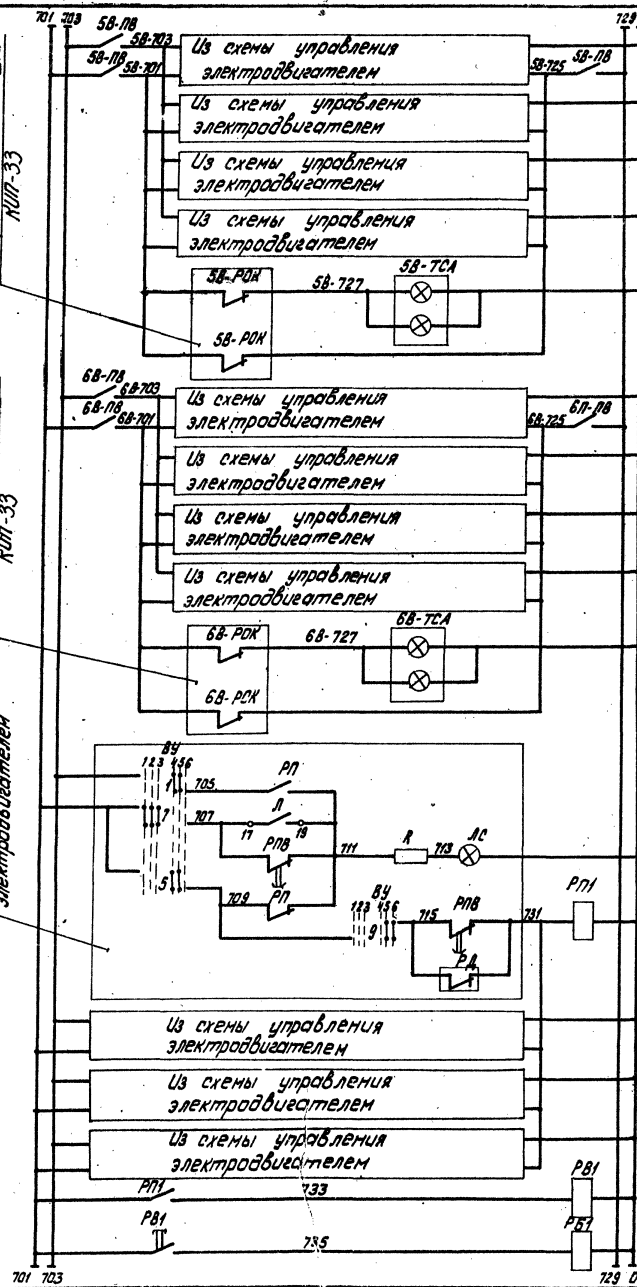 701 703
729
5В-ПВ
5В-703
Из схемы управления
электродвигателем
5В-ПВ
5В-701
5В-725
5В-ПВ
Из схемы управления
электродвигателем
КИП-33
Из схемы управления
электродвигателем
Из схемы управления
электродвигателем
5В-РОК
5В-727
5В-ТСА
5В-РОК
6В-ПВ
6В-703
Из схемы управления
электродвигателем
6В-ПВ
6В-701
6В-725
6П-ПВ
Из схемы управления
электродвигателем
КИП-33
Из схемы управления
электродвигателем
Из схемы управления
электродвигателем
6В-РОК
6В-727
6В-ТСА
6В-РОК
электродвигателем
ВУ
1 2 3 4 5 6
1
705
РП
7
707
17
Л
19
РПВ
711
R
713
ЛС
5
709
РП
ВУ
1 2 3 4 5 6
9
715
РПВ
731
РП1
РД
Из схемы управления
электродвигателем
Из схемы управления
электродвигателем
Из схемы управления
электродвигателем
РП1
733
РВ1
РВ1
735
РБ1
701 703
729 0